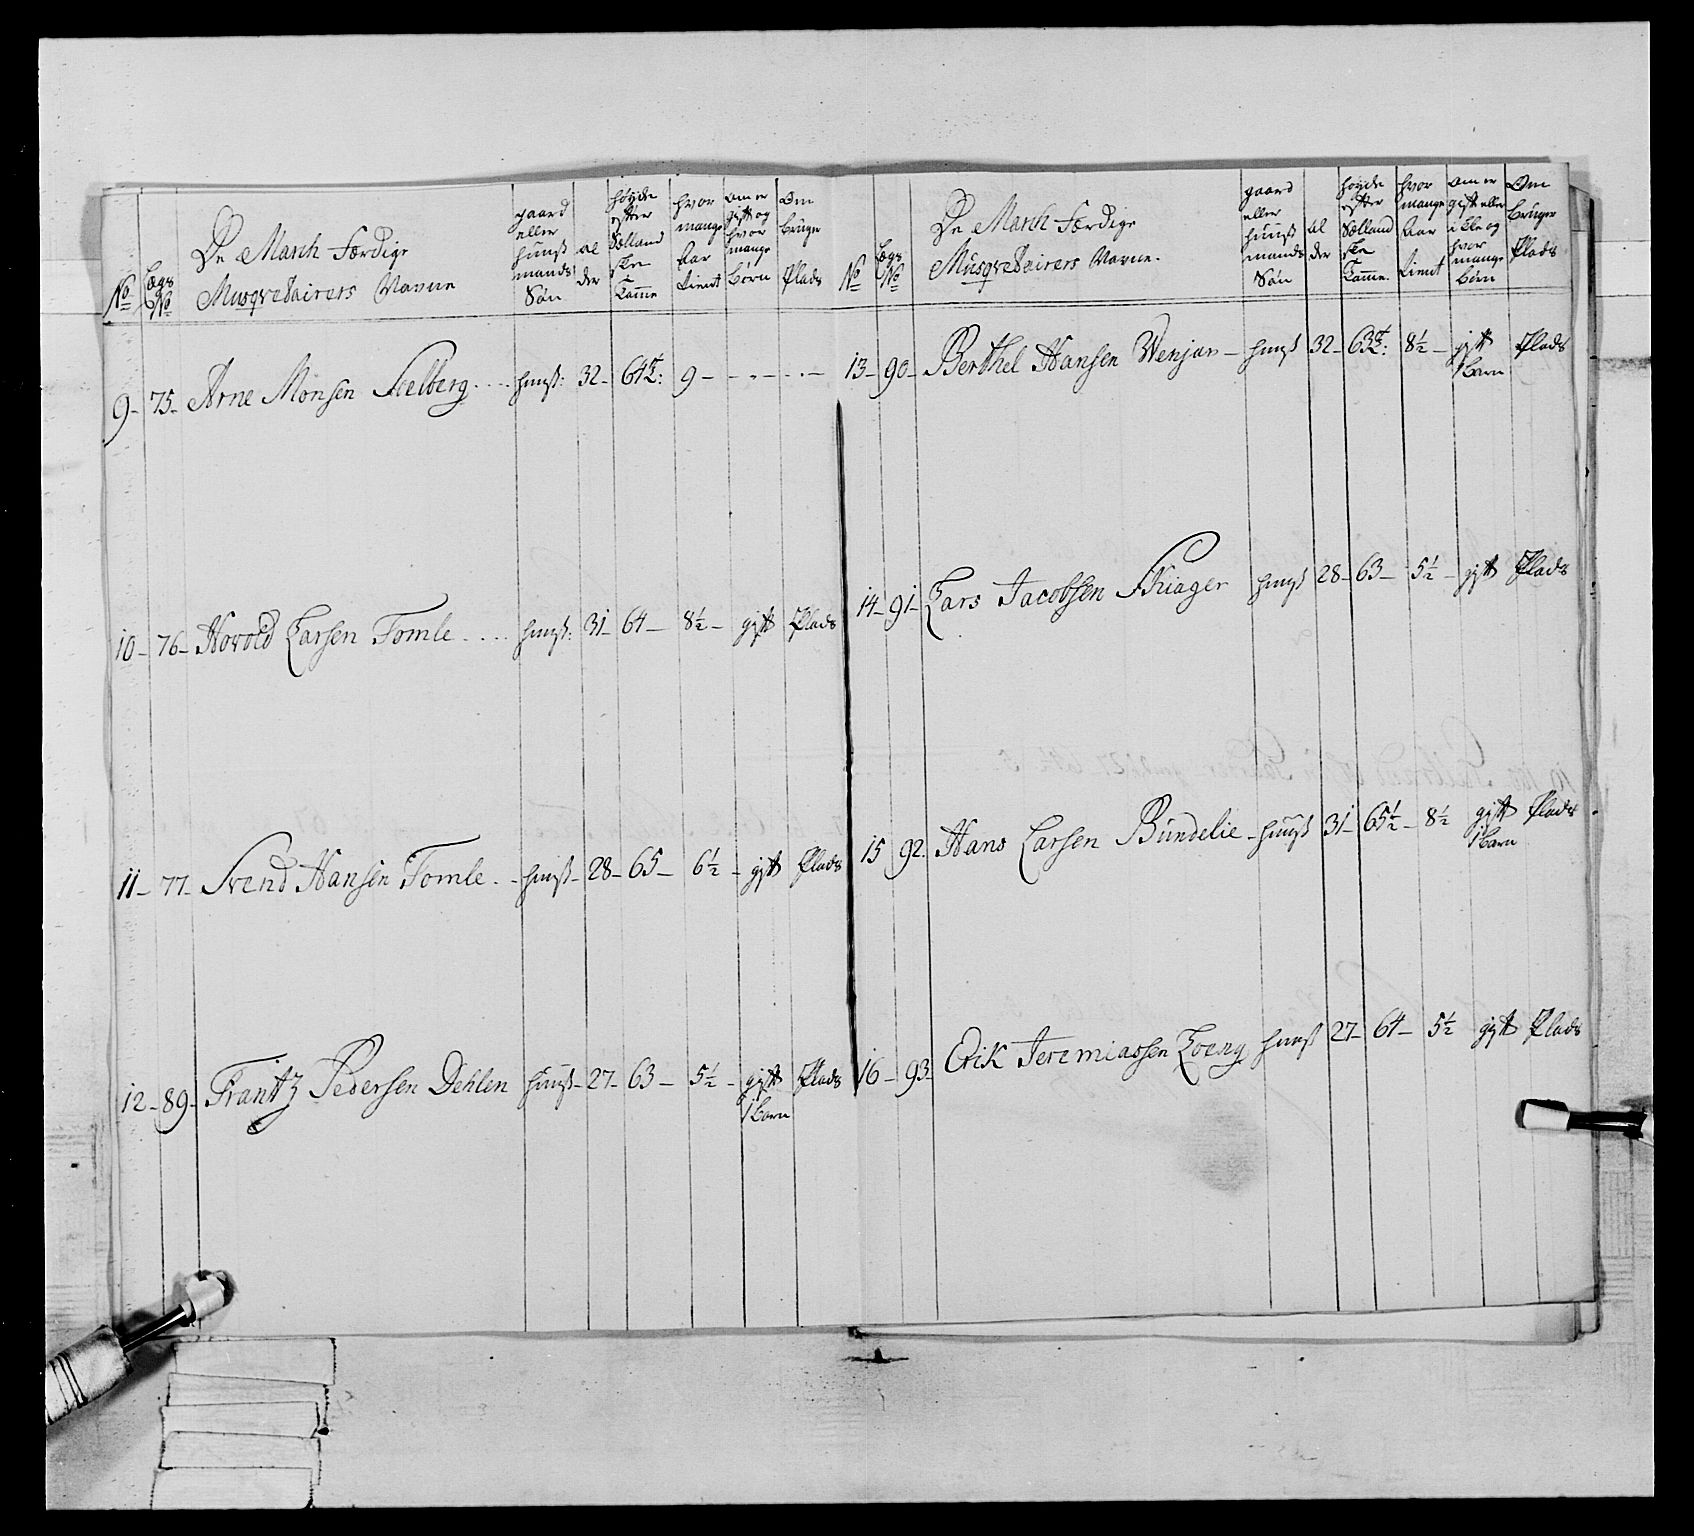 No
Lægs No
De March Færdige
Musqvetairers Navne
gaard eller huusmands Søn
alder
høyde efter Sællandske Tomme
hvor mange Aar tient
om er gift og hvor mange børn
Om bruger Plads
9 - 75 - Arne Monsen - - huusm: 32 - 64 9 - - - - -
10 - 76 - Harold Larsen Tomle - - - huusm: 31 - 64 - 8½ - gift Plads
11 - 77 - Svend Hansen Tomle - - huusm - 28 - 65 - 6½ - gift Plads
12 - 89 - Frantz Pedersen Dehlen huusm - 27 - 63 - 5½ - gift Plads
1 barn
No
Lægs No
De March Færdige
Musqvetairers Navne
gaard eller huusmands Søn
alder
høyde efter Sællandske Tomme
hvor mange Aar tient
om er gift eller ikke og hvor mange børn
Om bruger Plads
13 - 90 - Berthel Hansen Wenjar - huusm 32 - 63 8½ - gift Plads
1 barn
14 - 91 - Lars Jacobsen Skiager huusm 28 - 63 - 5½ - gift Plads
15 92. Hans Larsen Bundelie - huusm 31 - 65½ - 8½ gift Plads
1 barn
16 - 93 - Erik Jeremiassen Loeng huusm 27 - 64 - 5½ gift Plads